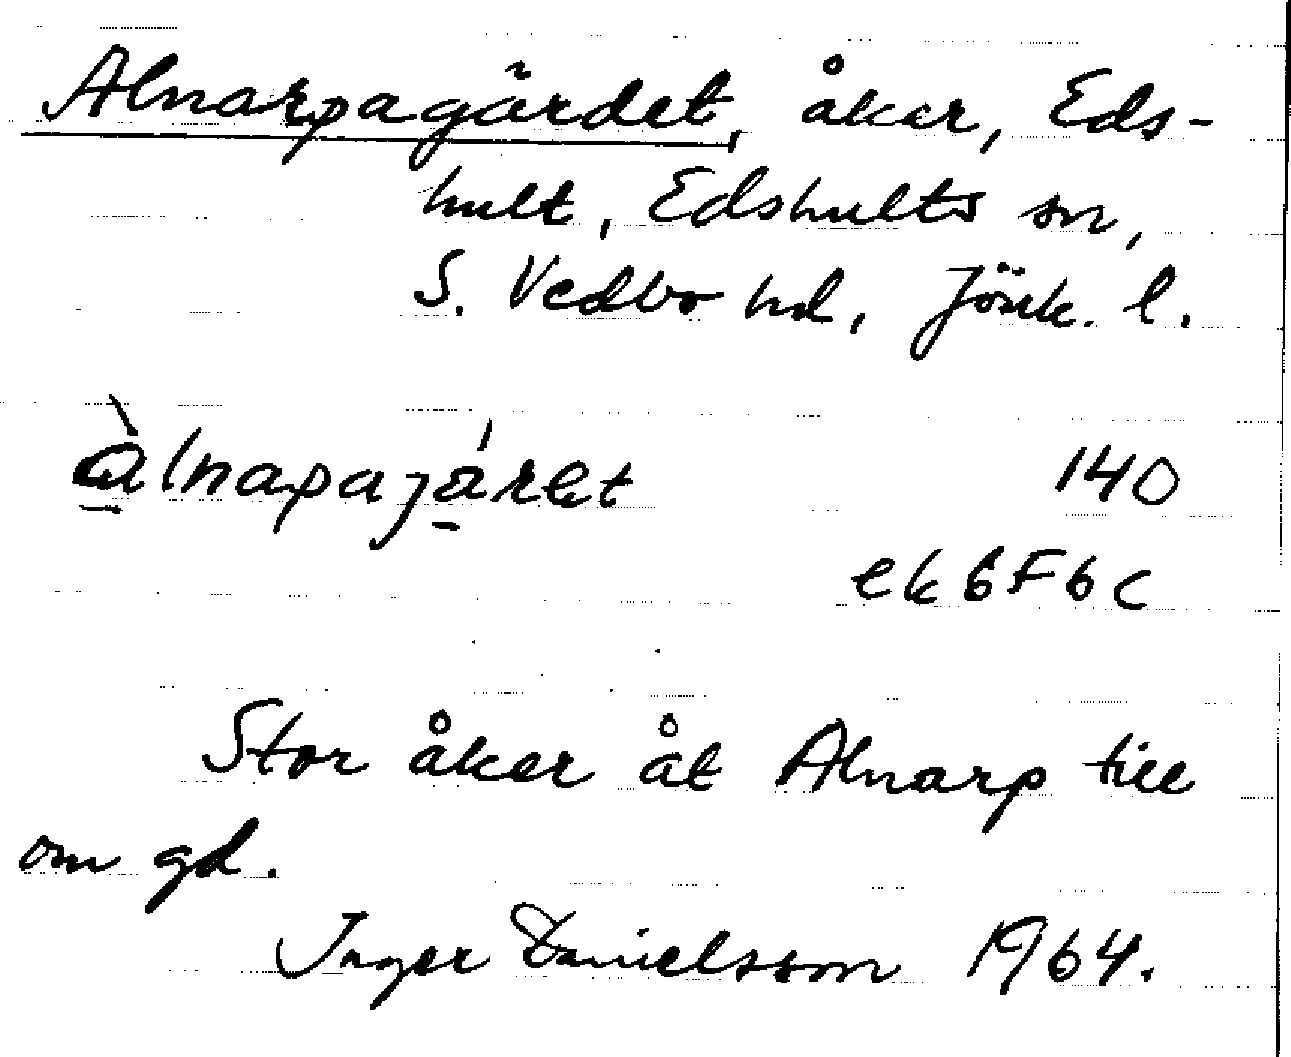 Alnarpagärdet, åker, Eds-
hult, Edshults sn,
S. Vedbo hd, Jönk. l.
àlnapajáret 140
ek 6F6c
Stor åker åt Alnarp till
om gd.
Inger Danielsson 1964.